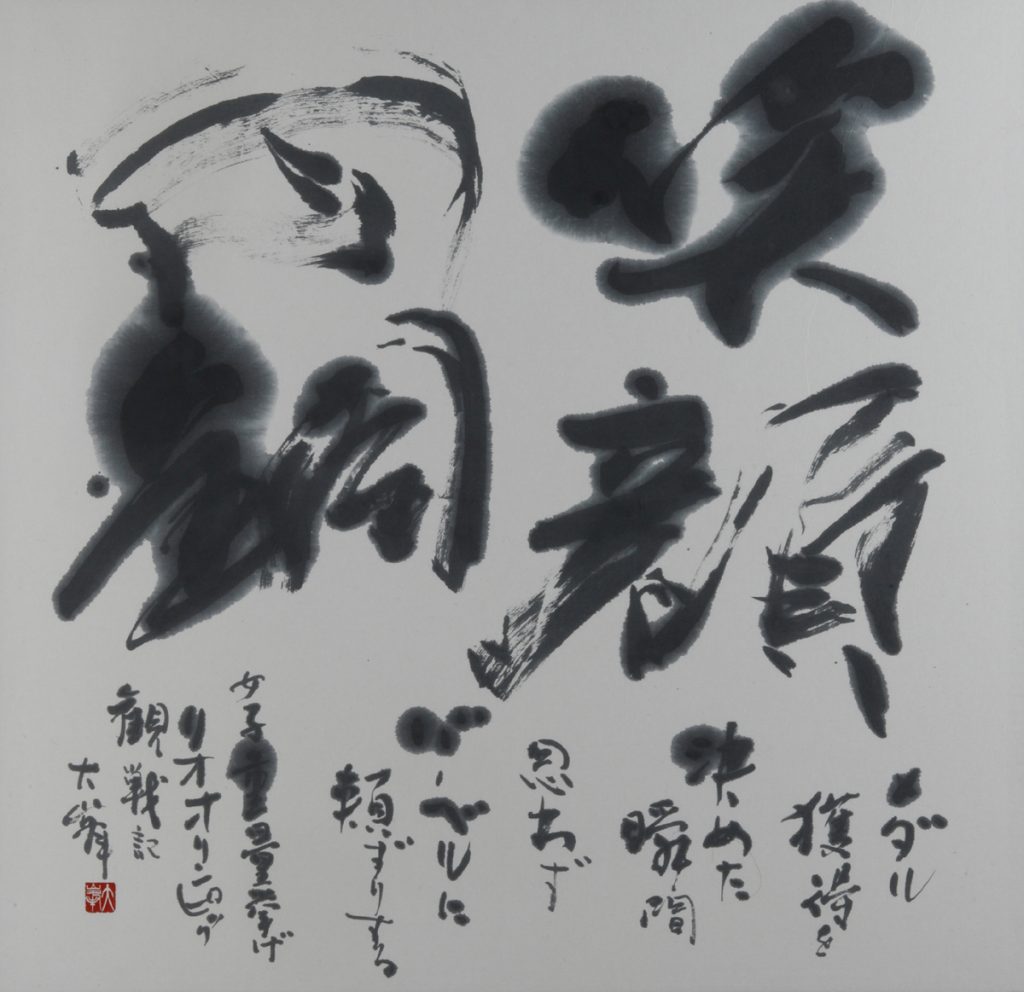 笑顔
の銅
メダル
獲得を
決めた
瞬間
思わず
バーベルに
頬ずりする
女子重量挙げ
リオオリンピック
観戦記